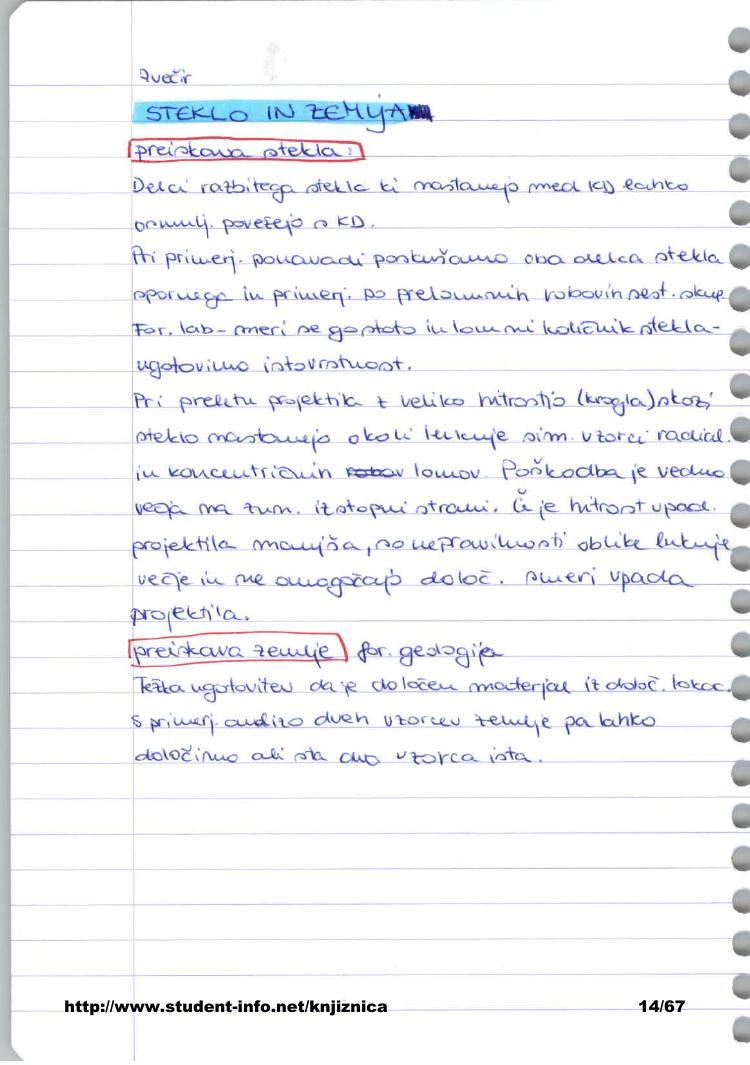 Zvečir
STEKLO IN ZEMLJA
preiskava stekla:
Delci razbitega stekla ki nastanejo med KD lahko
osumlj. povežejo s KD.
Pri primerj. ponavadi poskušamo oba delca stekla
spornega in primerj. po prelomnih robovih sest. skup.
For. lab - meri se gostoto in lomni količnik stekla -
ugotovimo istovrstnost.
Pri preletu projektila z veliko hitrostjo (krogla) skozi
steklo nastanejo okoli luknje sim. vzorci radial.
in koncentričnih lomov. Poškodba je vedno
večja na zun. izstopni strani. Če je hitrost upad.
projektila manjša, so nepravilnosti oblike luknje
večje in ne omogočajo določ. smeri vpada
projektila.
preiskava zemlje for. geologija
Težka ugotovitev da je določen material iz določ. lokac.
S primerj. analizo dveh vzorcev zemlje pa lahko
določimo ali sta dva vzorca ista.
http://www.student-info.net/knjiznica 14/67